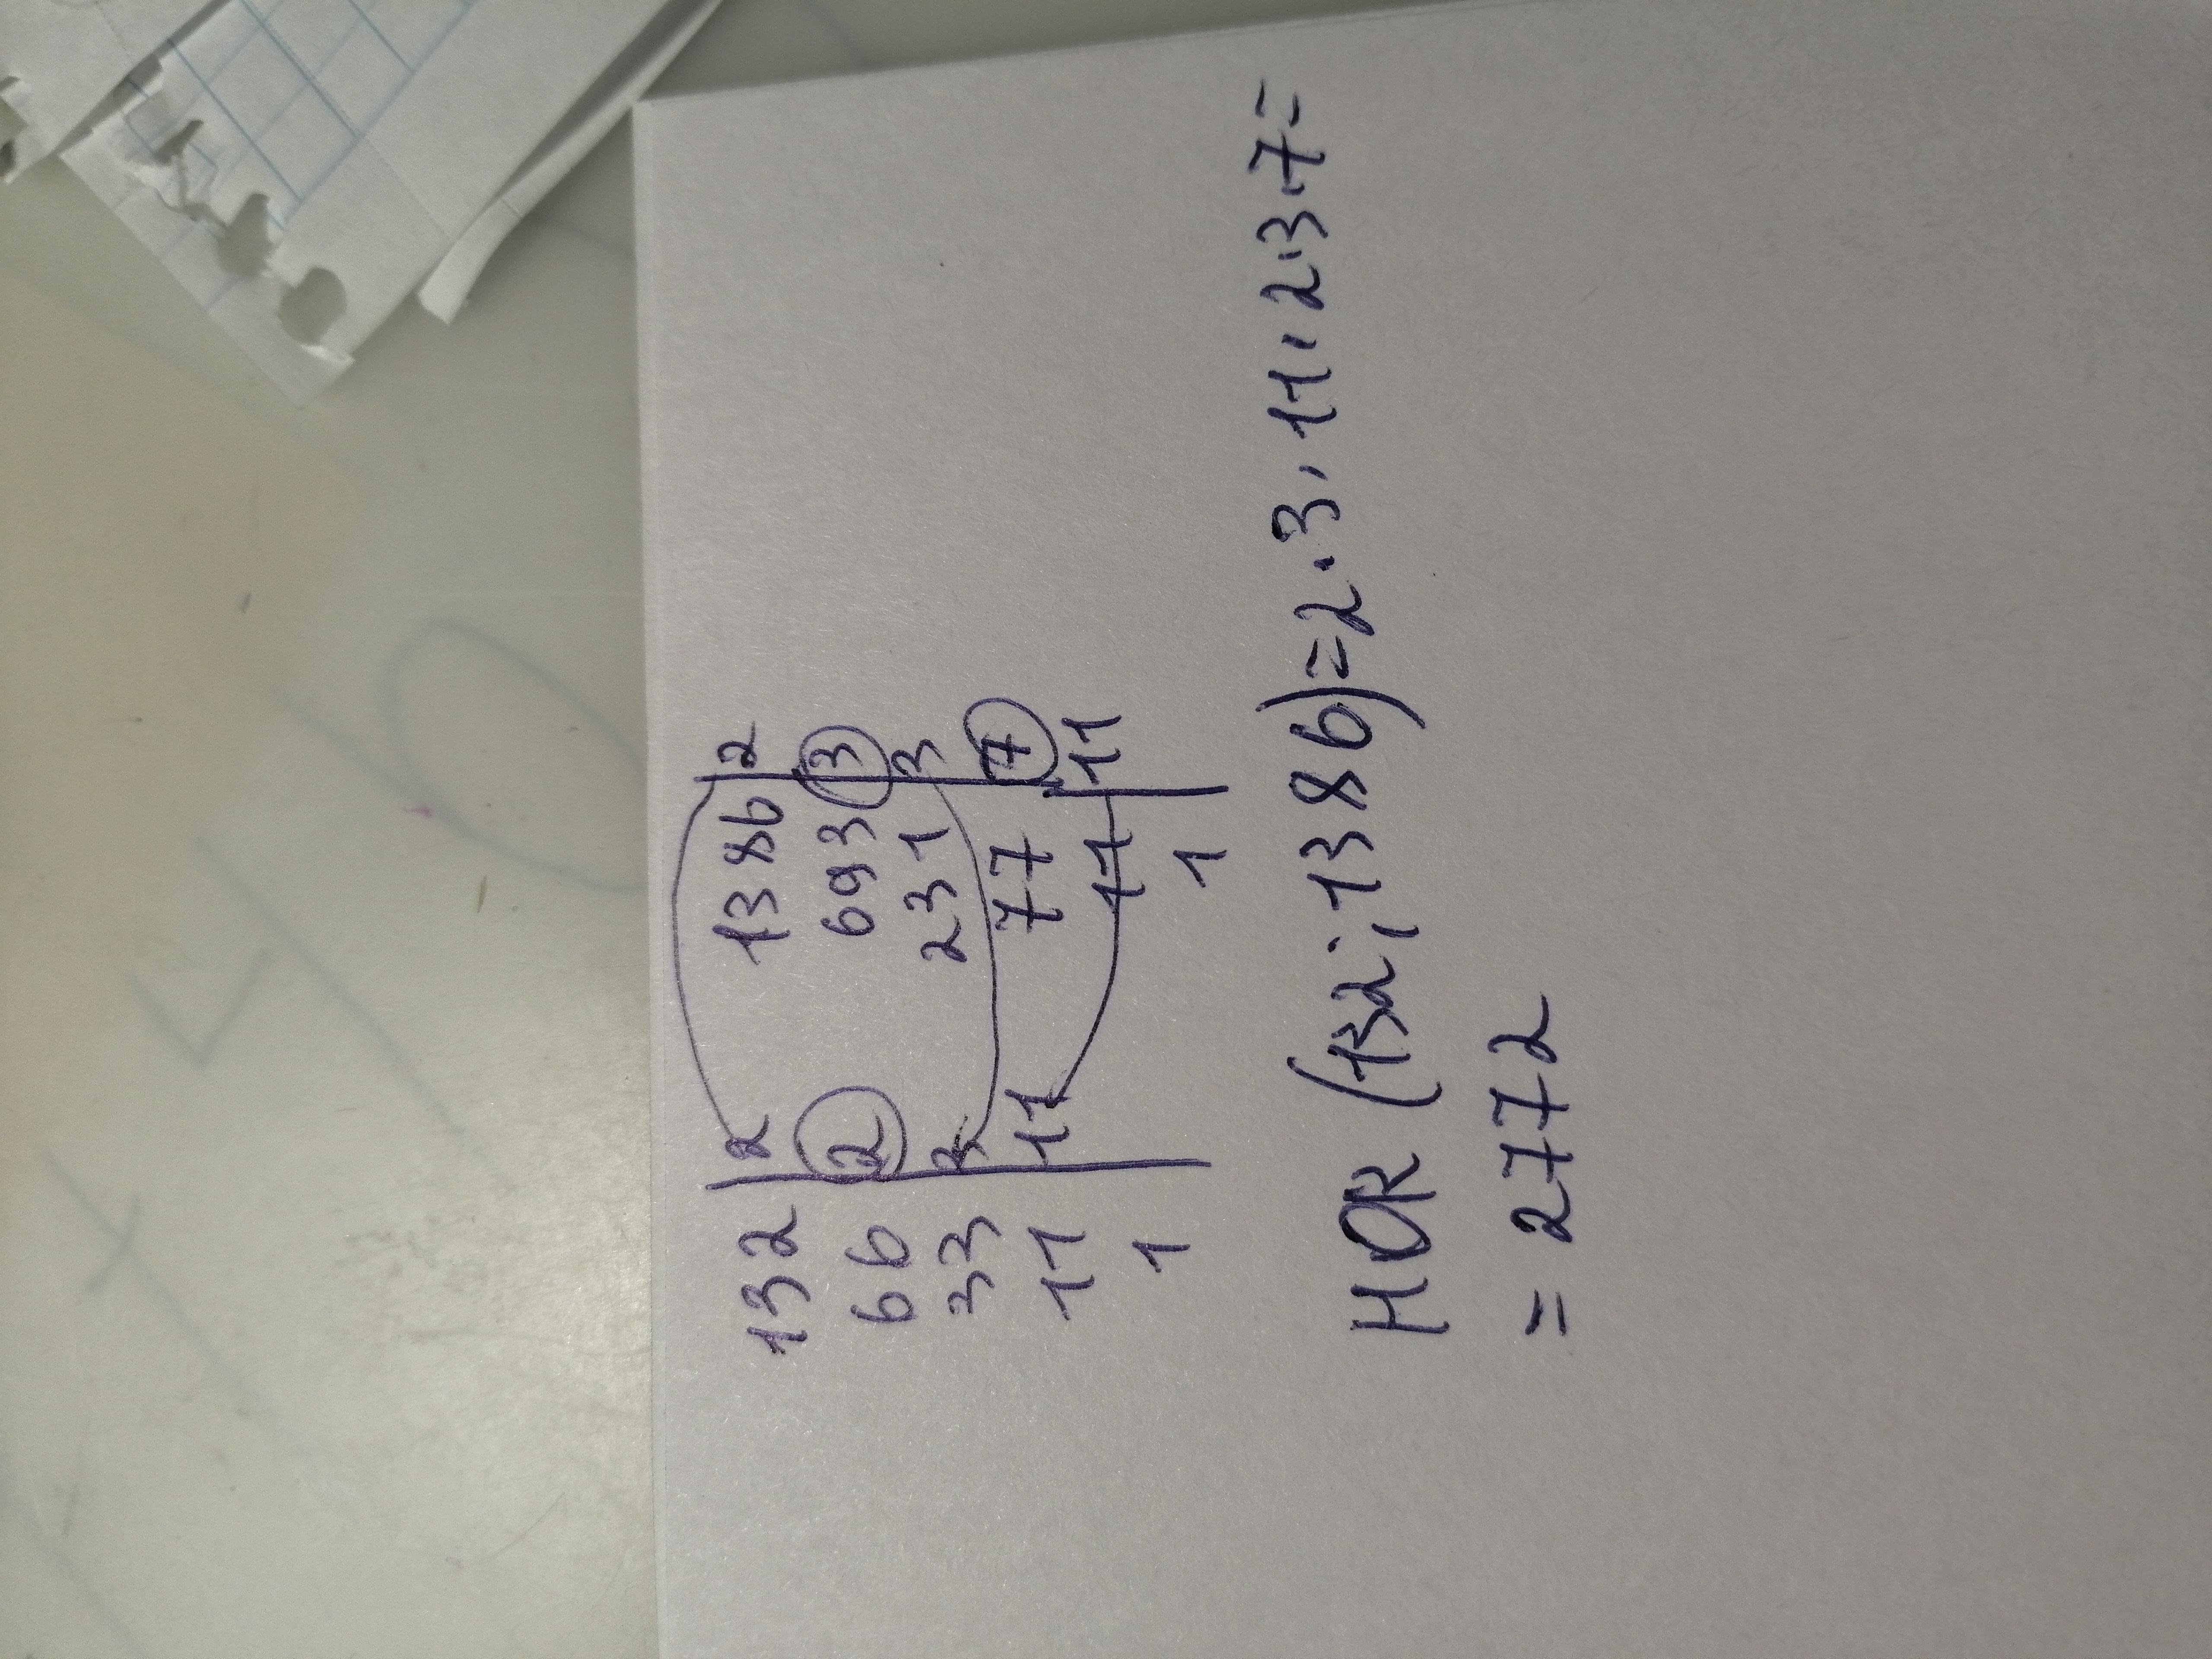 132 | 2 1386 | 2
66 | 2 693 | 3
33 | 3 231 | 3
11 | 11 77 | 7
1 11 | 11
1
НОК (132; 1386)=2·3·11·2·3·7=
=2772